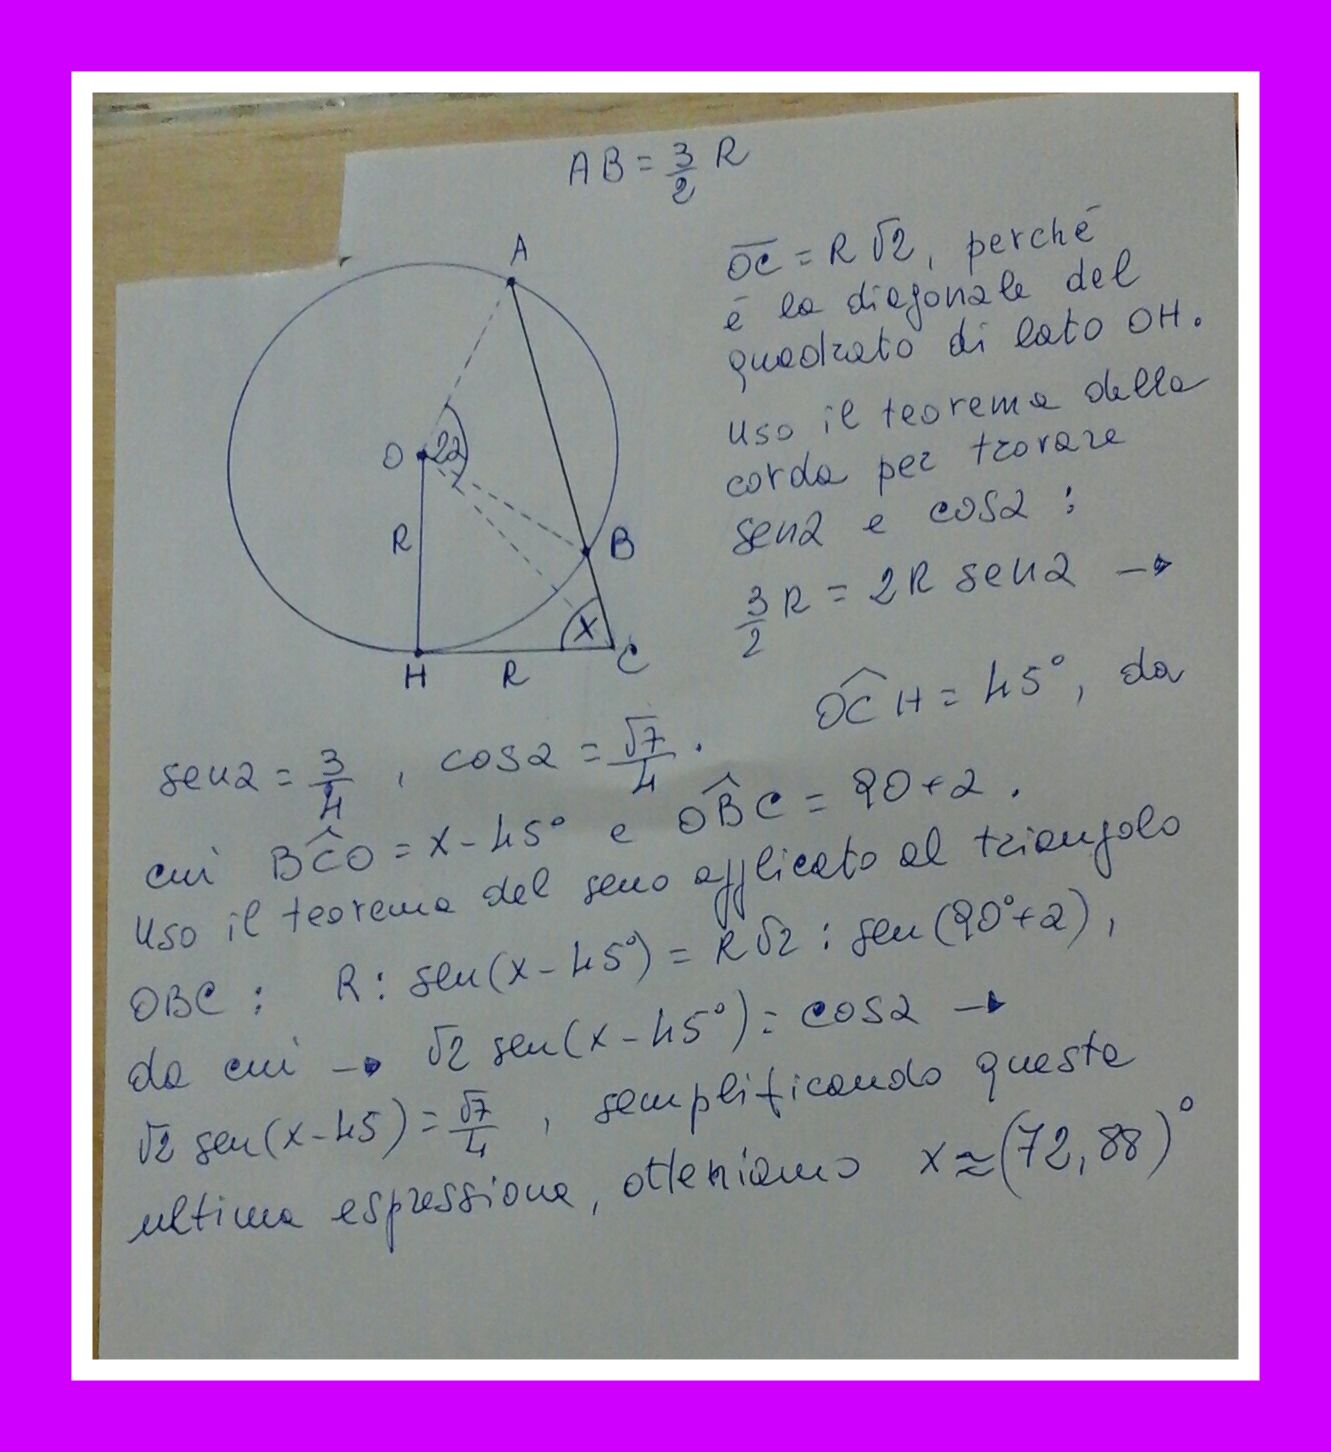 AB = 3/2 R
A
O
2α
R
B
x
H
R
C
OC = R√2, perché
é la diagonale del
quadrato di lato OH.
uso il teorema della
corda per trovare
senα e cosα :
3/2 R = 2R senα →
senα = 3/4 , cosα = √7/4 . OĈH = 45°, da
cui BĈO = x - 45° e OB̂C = 90+α .
uso il teorema del seno applicato al triangolo
OBC : R : sen(x - 45°) = R√2 : sen(90°+α) ,
da cui → √2 sen(x - 45°) = cosα →
√2 sen(x-45) = √7/4 , semplificando questa
ultima espressione, otteniamo x ≈ (72,88)°